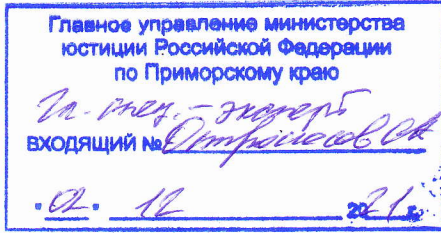 Главное управление министерства
юстиции Российской Федерации
по Приморскому краю
Гл. спец. - эксперт
ВХОДЯЩИЙ №
"02" 12 2021 г.